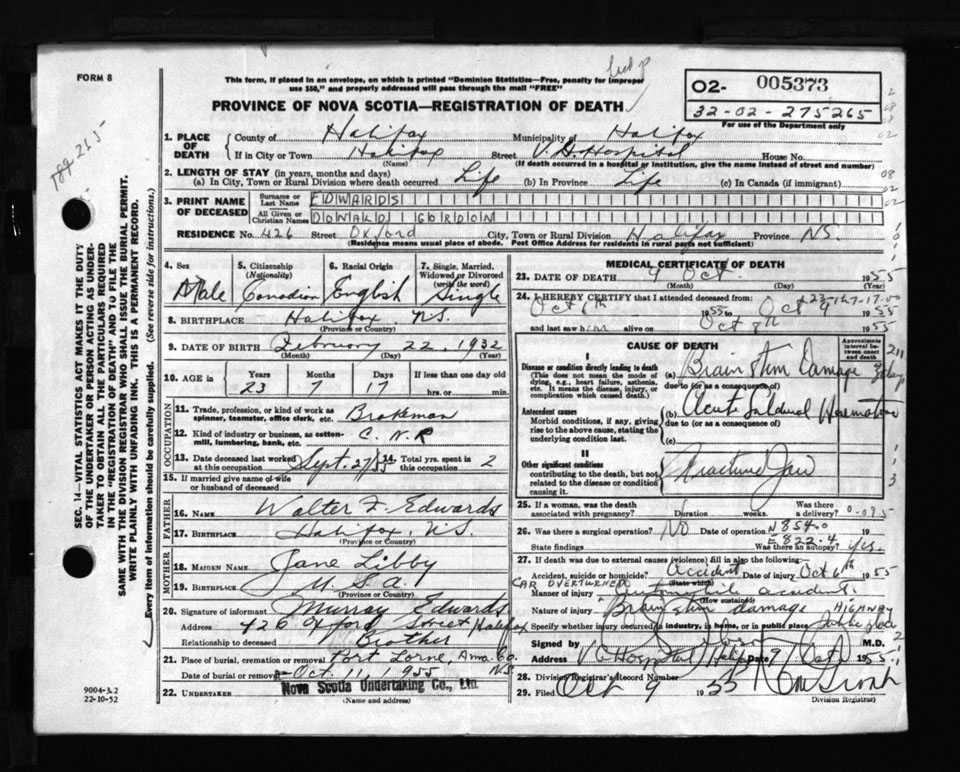 FORM 8
This form, if placed in an envelope, on which is printed "Dominion Statistics—Free, penalty for improper
use $50," and properly addressed will pass through the mail "FREE"
PROVINCE OF NOVA SCOTIA—REGISTRATION OF DEATH
02- 005373
32-02-275265
For use of the Department only
189265
SEC. 14—VITAL STATISTICS ACT MAKES IT THE DUTY
OF THE UNDERTAKER OR PERSON ACTING AS UNDER-
TAKER TO OBTAIN ALL THE PARTICULARS REQUIRED
IN THE "REGISTRATION OF DEATH" AND TO FILE THE
SAME WITH THE DIVISION REGISTRAR WHO SHALL ISSUE THE BURIAL PERMIT.
WRITE PLAINLY WITH UNFADING INK. THIS IS A PERMANENT RECORD.
Every item of information should be carefully supplied. (See reverse side for instructions.)
1. PLACE OF DEATH County of Halifax Municipality of Halifax
If in City or Town Halifax Street V.G. Hospital House No.
(Name) (If death occurred in a hospital or institution, give the name instead of street and number)
2. LENGTH OF STAY (in years, months and days)
(a) In City, Town or Rural Division where death occurred Life (b) In Province Life (c) In Canada (if immigrant)
3. PRINT NAME OF DECEASED Surname or Last Name EDWARDS
All Given or Christian Names DONALD GORDON
RESIDENCE No. 426 Street Oxford City, Town or Rural Division Halifax Province N.S.
(Residence means usual place of abode. Post Office Address for residents in rural parts not sufficient)
4. Sex 5. Citizenship (Nationality) 6. Racial Origin 7. Single, Married, Widowed or Divorced (write the word)
Male Canadian English Single
8. BIRTHPLACE Halifax, N.S.
(Province or Country)
9. DATE OF BIRTH February 22, 1932
(Month) (Day) (Year)
10. AGE in Years Months Days If less than one day old
23 7 17 hrs. or min.
OCCUPATION
11. Trade, profession, or kind of work as spinner, teamster, office clerk, etc. Brakeman
12. Kind of industry or business, as cotton-mill, lumbering, bank, etc. C.N.R
13. Date deceased last worked at this occupation Sept. 27/55 14. Total yrs. spent in this occupation 2
15. If married give name of wife or husband of deceased
FATHER
16. Name Walter F. Edwards
17. Birthplace Halifax, N.S.
(Province or Country)
MOTHER
18. Maiden Name Jane Libby
19. Birthplace U.S.A.
(Province or Country)
20. Signature of informant Murray Edwards
Address 426 Oxford Street Halifax
Relationship to deceased Brother
21. Place of burial, cremation or removal Port Lorne, Anna. Co. N.S.
Date of burial or removal Oct. 11, 1955
22. UNDERTAKER Nova Scotia Undertaking Co., Ltd.
(Name and address)
9004-3.2
22-10-52
MEDICAL CERTIFICATE OF DEATH
23. DATE OF DEATH 9 Oct. 1955
(Month) (Day) (Year)
24. I HEREBY CERTIFY that I attended deceased from:
Oct 6th 1955 to Oct 9 1955
and last saw him alive on Oct 8th 1955
CAUSE OF DEATH
Approximate interval between onset and death
I
Disease or condition directly leading to death (a) Brain Stem Damage
(This does not mean the mode of dying, e.g., heart failure, asthenia, etc. It means the disease, injury, or complication which caused death.)
due to (or as a consequence of)
Antecedent causes (b) Acute Subdural Hematoma
Morbid conditions, if any, giving rise to the above cause, stating the underlying condition last.
due to (or as a consequence of)
(c)
II
Other significant conditions Fractured Jaw
contributing to the death, but not related to the disease or condition causing it.
25. If a woman, was the death associated with pregnancy? Duration weeks. Was there a delivery?
26. Was there a surgical operation? No Date of operation N854.0
E822.4
State findings Was there an autopsy? Yes.
27. If death was due to external causes (violence) fill in also the following:
Accident, suicide or homicide? Accident Date of injury Oct 6th 1955
(State which)
CAR OVERTURNED
Manner of injury Automobile accident.
(How sustained)
Nature of injury Brain stem damage HIGHWAY
Specify whether injury occurred in industry, in home, or in public place Public place
Signed by M.D.
Address V.G. Hospital Halifax Date 9 Oct 1955
28. Division Registrar's Record Number
29. Filed Oct 9 1955
Division Registrar